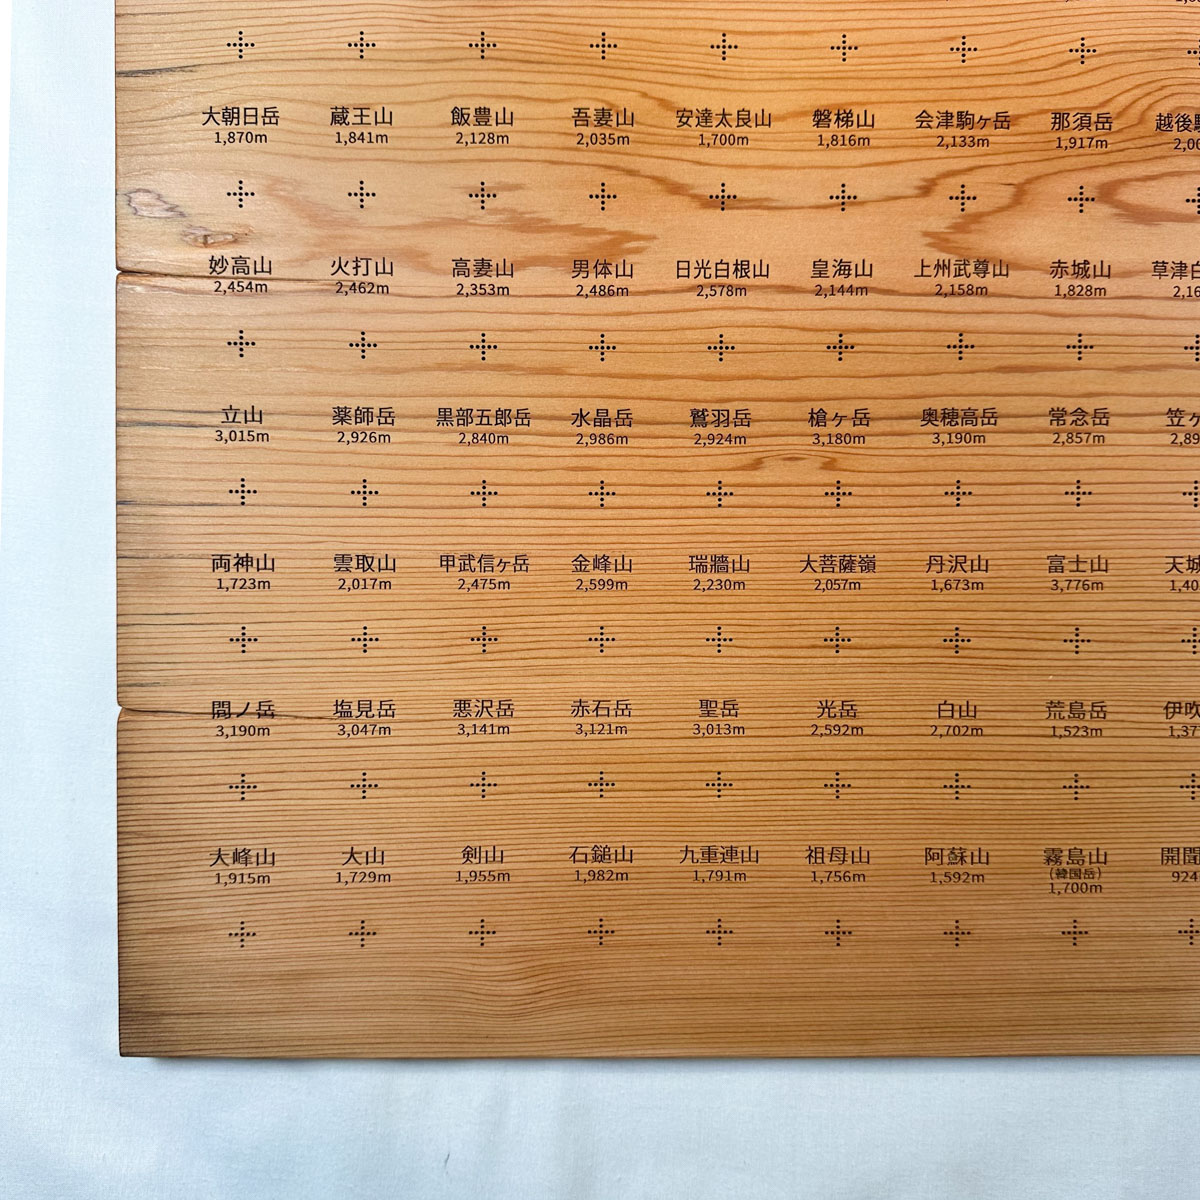 大朝日岳 蔵王山 飯豊山 吾妻山 安達太良山 磐梯山 会津駒ヶ岳 那須岳 越後
1,870m 1,841m 2,128m 2,035m 1,700m 1,816m 2,133m 1,917m 2,00
妙高山 火打山 高妻山 男体山 日光白根山 皇海山 上州武尊山 赤城山 草津白
2,454m 2,462m 2,353m 2,486m 2,578m 2,144m 2,158m 1,828m 2,16
立山 薬師岳 黒部五郎岳 水晶岳 鷲羽岳 槍ヶ岳 奥穂高岳 常念岳 笠ヶ
3,015m 2,926m 2,840m 2,986m 2,924m 3,180m 3,190m 2,857m 2,89
両神山 雲取山 甲武信ヶ岳 金峰山 瑞牆山 大菩薩嶺 丹沢山 富士山 天城
1,723m 2,017m 2,475m 2,599m 2,230m 2,057m 1,673m 3,776m 1,40
間ノ岳 塩見岳 悪沢岳 赤石岳 聖岳 光岳 白山 荒島岳 伊吹
3,190m 3,047m 3,141m 3,121m 3,013m 2,592m 2,702m 1,523m 1,37
大峰山 大山 剣山 石鎚山 九重連山 祖母山 阿蘇山 霧島山 開聞
(韓国岳)
1,915m 1,729m 1,955m 1,982m 1,791m 1,756m 1,592m 1,700m 924